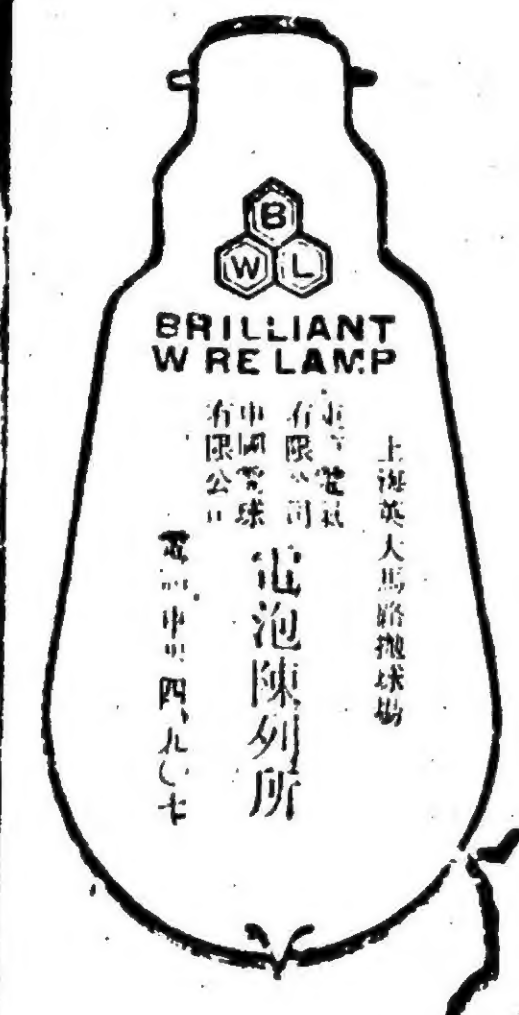 B
W L
BRILLIANT
W RE LAMP
上海英大馬路拋球場
有限公司
中國電球
有限公司
電泡陳列所
電話中央四九〇七